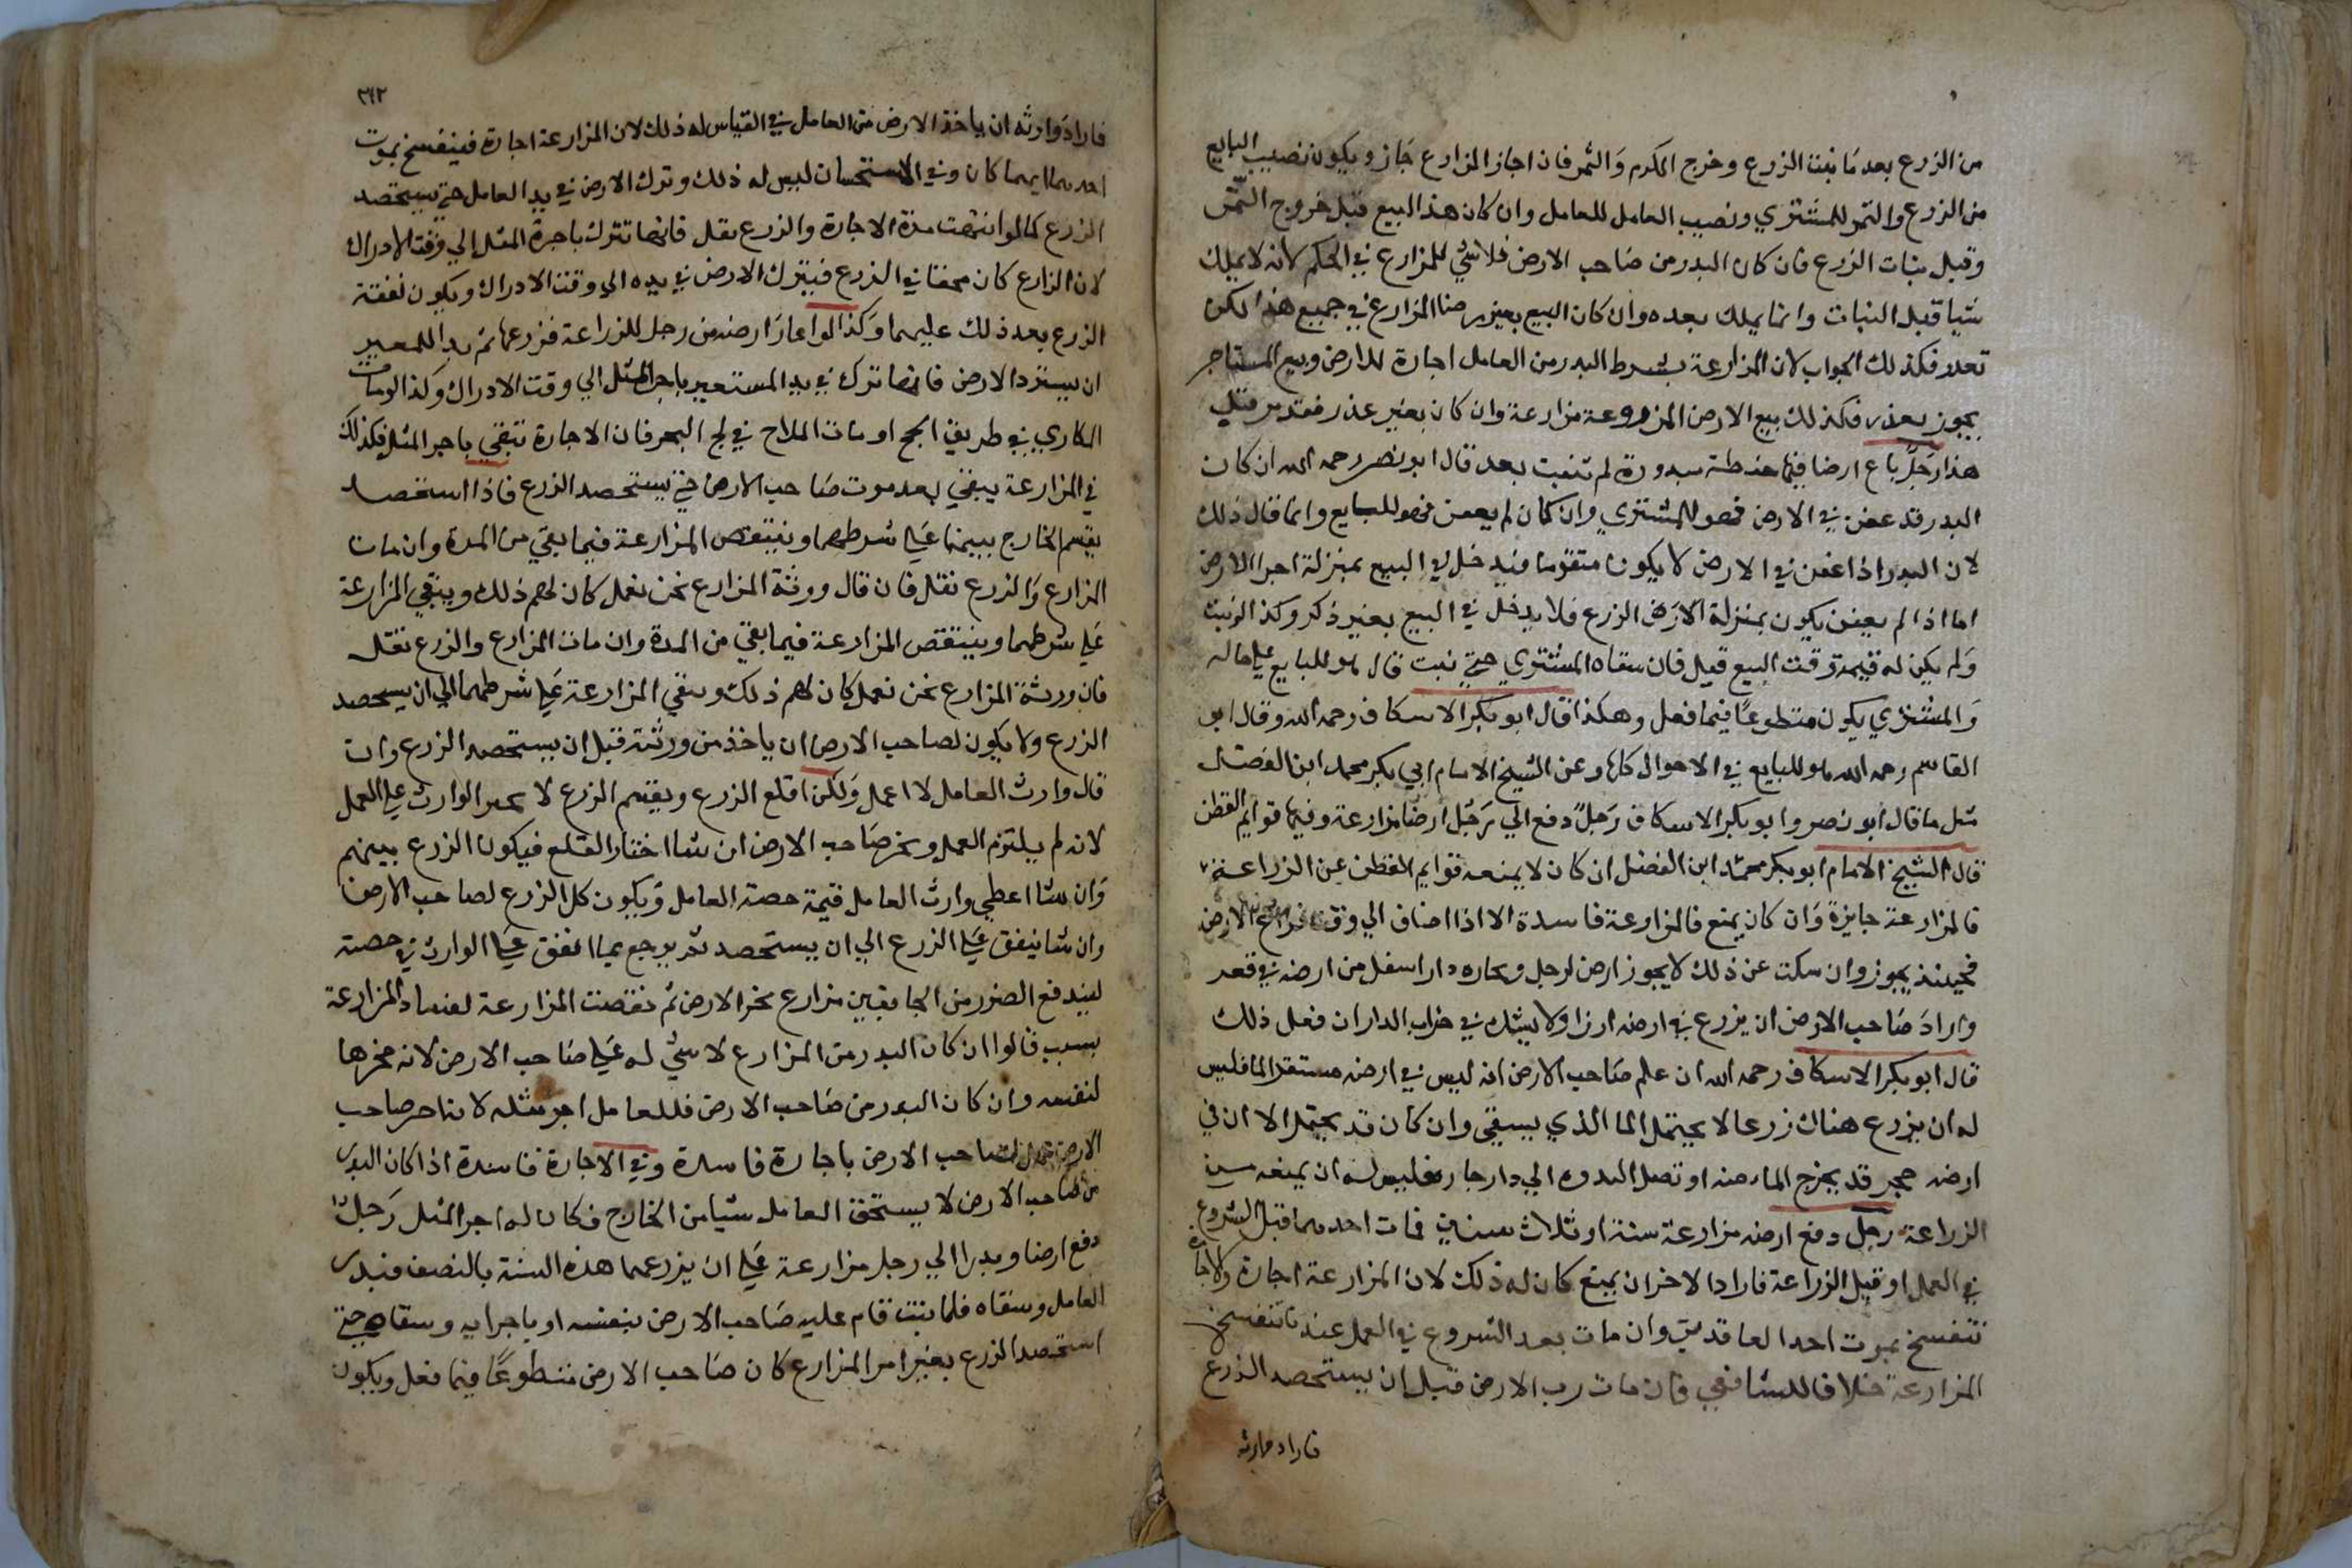 من الزرع بعد ما نبت الزرع وخرج الكرم والثمر فان اجاز المزارع جاز ويكون نصيب البايع
من الزرع والثمر للمشتري ونصيب العامل للعامل وان كان هذا البيع قبل خروج الثمر
وقبل نبات الزرع فان كان البدر من صاحب الارض فلا شي للمزارع في الحكم لانه لا يملك
شيا قبل النبات وانما يملك بعده وان كان البيع بغير رضا المزارع في جميع هذا لكن
فكذلك الجواب لان المزارعة بشرط البدر من العامل اجارة للارض وبيع المستاجر
يجوز بعذر فكذلك بيع الارض المزروعة مزارعة وان كان بغير عذر فقد مر قبل
هذا رجل باع ارضا فيها حنطة مبدورة لم تنبت بعد قال ابو نصر رحمه الله ان كان
البدر قد عفن في الارض فهو للمشتري وان كان لم يعفن فهو للبايع وانما قال ذلك
لان البدر اذا عفن في الارض لا يكون متقوما فيدخل في البيع بمنزلة اجرا الارض
اما اذا لم يعفن يكون بمنزلة الارض الزرع فلا يدخل في البيع بغير ذكر وكذا لو نبت
ولم يكن له قيمة وقت البيع قيل فان سقاه المشتري حتي نبت قال هو للبايع علي حاله
والمشتري يكون متطوعا فيما فعل وهكذا قال ابو بكر الاسكاف رحمه الله وقال ابي
القاسم رحمه الله هو للبايع في الاحوال كلها وعن الشيخ الامام ابي بكر محمد ابن الفضل
مثل ما قال ابو نصر وابو بكر الاسكاف رجل دفع الي رجل ارضا مزارعة وفيها قوايم القطن
قال الشيخ الامام ابو بكر محمد ابن الفضل ان كان لا يمنعه قوايم القطن عن الزراعة
فالمزارعة جايزة وان كان يمنع فالمزارعة فاسدة الا اذا اضاف الي وقت فراغ الارض
فحينئذ يجوز وان سكت عن ذلك لا يجوز ارض لرجل وبجاره دار اسفل من ارضه في قعر
واراد صاحب الارض ان يزرع في ارضه ارزا ولا يشك في خراب الدار ان فعل ذلك
قال ابو بكر الاسكاف رحمه الله ان علم صاحب الارض انه ليس في ارضه مستقر الما فليس
له ان يزرع هناك زرعا لا يحتمل الما الذي يسقي وان كان قد يحتمل الا ان في
ارضه حجر قد يخرج الماء منه او تصل الندوه الي دار جاره فليس له ان يمنعه من
الزراعة رجل دفع ارضه مزارعة سنة او ثلاث سنين فمات احدهما قبل الشروع
في العمل او قبل الزراعة فاراد الاخر ان يمنع كان له ذلك لان المزارعة اجارة والاجارة
تنفسخ بموت احد العاقدين وان مات بعد الشروع في العمل عندنا تنفسخ
المزارعة خلافا للشافعي فان مات رب الارض قبل ان يستحصد الزرع
فاراد وارثه
٣٤٢
فاراد وارثه ان ياخذ الارض من العامل في القياس له ذلك لان المزارعة اجارة فينفسخ بموت
احدهما ايهما كان وفي الاستحسان ليس له ذلك وترك الارض في يد العامل حتي يستحصد
الزرع كما لو انتهت مدة الاجارة والزرع بقل فانها تترك باجرة المثل الي وقت الادراك
لان الزارع كان محقا في الزرع فيترك الارض في يده الي وقت الادراك ويكون نفقة
الزرع بعد ذلك عليهما وكذا لو اعار ارضه من رجل للزراعة فزرعها ثم بدا للمعير
ان يسترد الارض فانها تترك في يد المستعير باجر المثل الي وقت الادراك وكذا لو مات
المكاري في طريق الحج او مات الملاح في لج البحر فان الاجارة تبقي باجر المثل فكذلك
في المزارعة يبقي بعد موت صاحب الارض حتي يستحصد الزرع فاذا استحصد
يقسم الخارج بينهما علي شرطهما وينتقض المزارعة فيما بقي من المدة وان مات
المزارع والزرع بقل فان قال وورثة المزارع نحن نعمل كان لهم ذلك ويبقي المزارعة
علي شرطهما وينتقض المزارعة فيما بقي من المدة وان مات المزارع والزرع بقل
فان ورثة المزارع نحن نعمل كان لهم ذلك وتبقي المزارعة علي شرطهما الي ان يستحصد
الزرع ولا يكون لصاحب الارض ان ياخذ من ورثته قبل ان يستحصد الزرع وان
قال وارث العامل لا اعمل ولكن اقلع الزرع ويقسم الزرع لا يجبر الوارث علي العمل
لانه لم يلتزم العمل ويخير صاحب الارض ان شا اختار القلع فيكون الزرع بينهم
وان شا اعطي وارث العامل قيمة حصة العامل ويكون كل الزرع لصاحب الارض
وان شا ينفق علي الزرع الي ان يستحصد ثم يرجع بما انفق علي الوارث في حصته
ليندفع الضرر من الجانبين مزارع نحر الارض ثم نقضت المزارعة لفساد المزارعة
بسبب قالوا ان كان البدر من المزارع لا شي له علي صاحب الارض لانه نحرها
لنفسه وان كان البدر من صاحب الارض فللعامل اجر مثله لانه اجر صاحب
الارض صاحب الارض باجارة فاسدة وفي الاجارة فاسدة اذا كان البدر
من صاحب الارض لا يستحق العامل شيا من الخارج فكان له اجر المثل رجل
دفع ارضا وبدرا الي رجل مزارعة علي ان يزرعها هذه السنة بالنصف فبدر
العامل وسقاه فلما نبت قام عليه صاحب الارض بنفسه او باجرايه وسقاه حتي
استحصد الزرع بغير امر المزارع كان صاحب الارض متطوعا فيما فعل ويكون